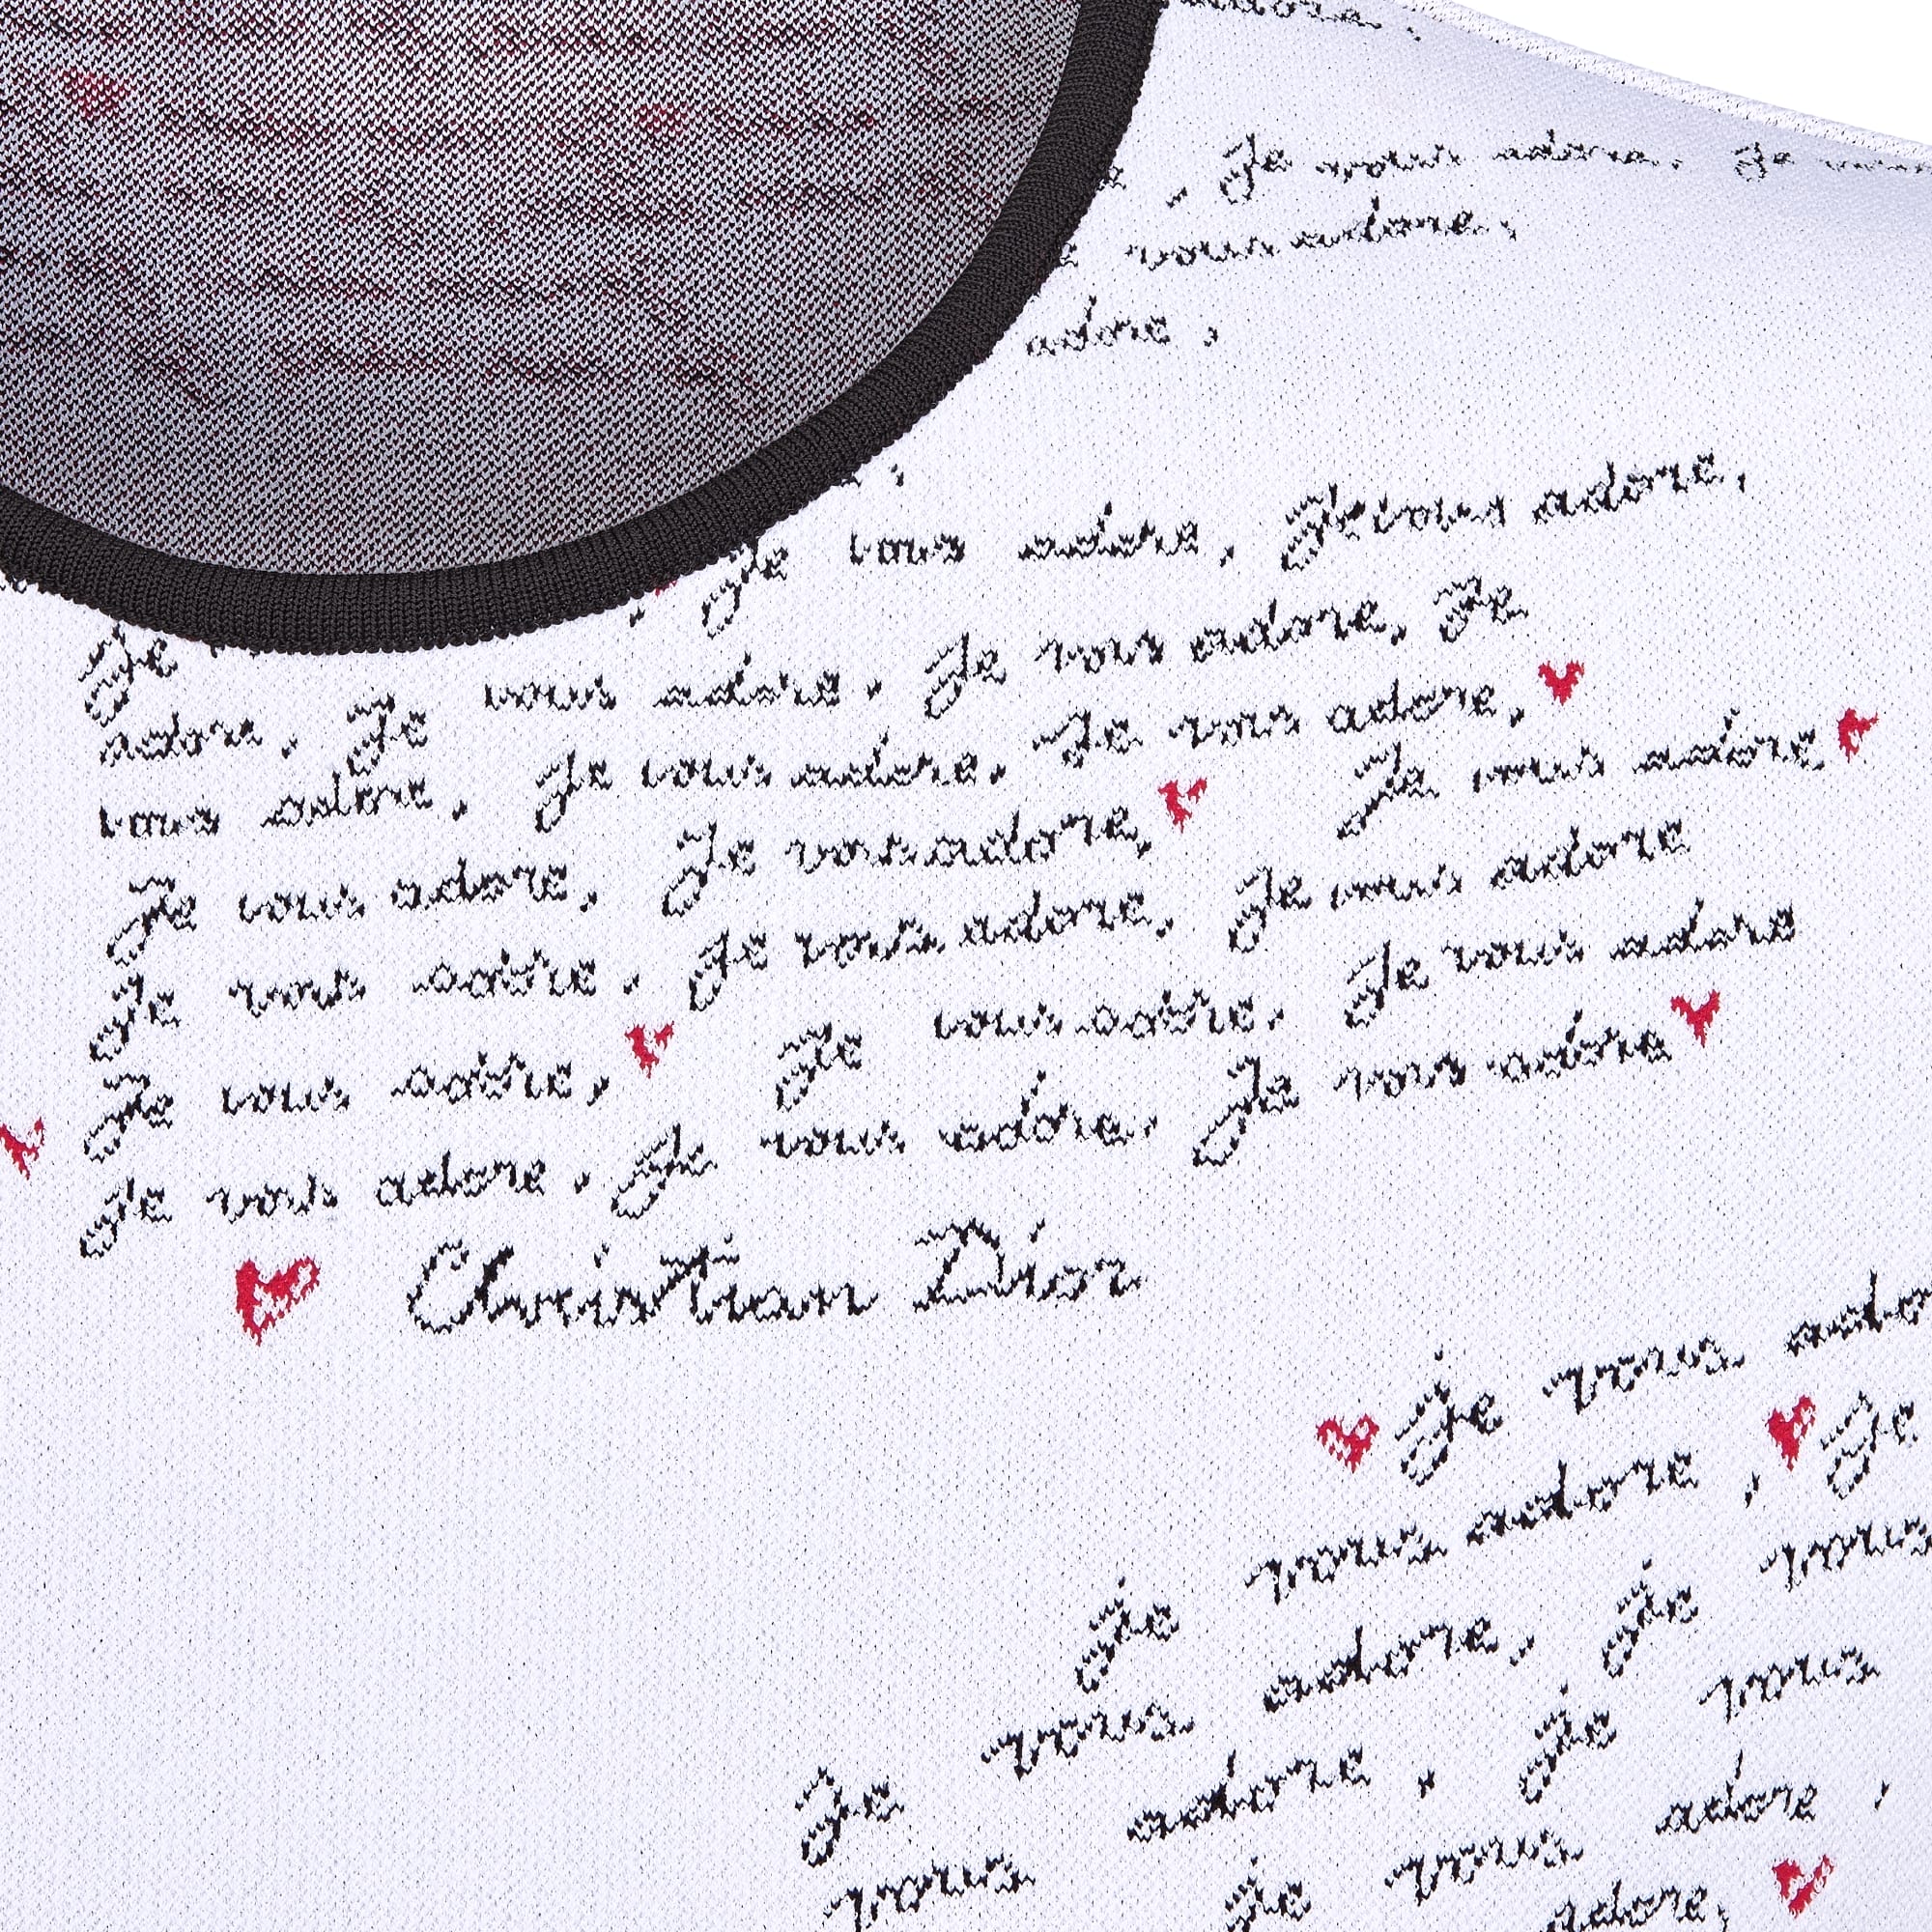 adore,
, Je vous adore. Je vous
vous adore,
adore,
Je vous adore, Je vous adore,
Je
adore, Je vous adore, Je vous adore, Je
vous adore, Je vous adore, Je vous adore,
Je vous adore, Je vous adore, Je vous adore
Je vous adore, Je vous adore, Je vous adore
Je vous adore, Je vous adore, Je vous adore
Je vous adore, Je vous adore, Je vous adore
Christian Dior
Je vous ado
vous adore, Je
Je vous adore, Je vous
vous adore, Je vous
Je vous adore,
vous Je adore,